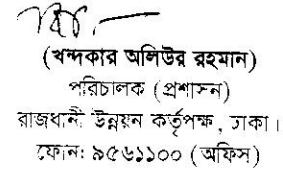 (খন্দকার অলিউর রহমান)
পরিচালক (প্রশাসন)
রাজধানী উন্নয়ন কর্তৃপক্ষ, ঢাকা।
ফোন: ৯৫৬১১০০ (অফিস)